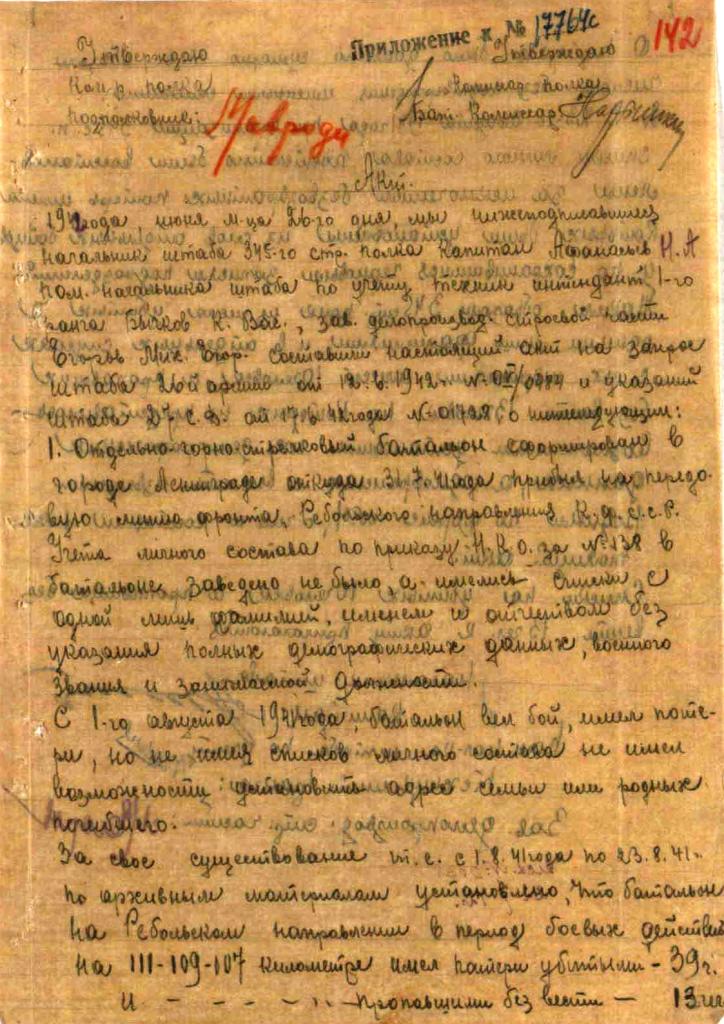 Приложение к № 17764с
142
Утверждаю Утверждаю
Ком-р полка Комиссар полка
Подполковник: Бат. Комиссар
Акт.
1942 года июня м-ца 26-го дня, мы нижеподписавшиеся
Начальник штаба 345-го стр. полка капитан Афанасьев Н.А
Пом. начальника штаба по учету техник интендант 1-го
ранга Бычков К. Вас., зав. делопроизвод. строевой части
Мих. Егор. составили настоящий акт на запрос
штаба 26й армии от 12.6.1942г. и указаний
штаба 27 с.д. от 17.6.42 года № 01728, о нижеследующем:
1. Отдельно горно-стрелковый батальон сформирован в
городе Ленинграде откуда 31.7.41 года прибыл на передо-
вую линию фронта Ребольского направления К.Ф.С.С.Р.
Учета личного состава по приказу Н.К.О. за № 138 в
батальоне заведено не было, а имелись списки, с
одной лишь фамилией, именем и отчеством без
указания полных демографических данных, военного
звания и занимаемой должности.
С 1-го августа 1941 года, батальон вел бой, имел поте-
ри, но не имея списков личного состава не имел
возможности установить адрес семьи или родных
погибшего.
За свое существование т.е. с 1.8.41 года по 23.8.41г.
по архивным материалам установлено, что батальон
на Ребольском направлении в период боевых действий
на 111-109-107 километре имел потери убитыми - 39ч.
И - - - - „ - Пропавшими без вести - 13 чел